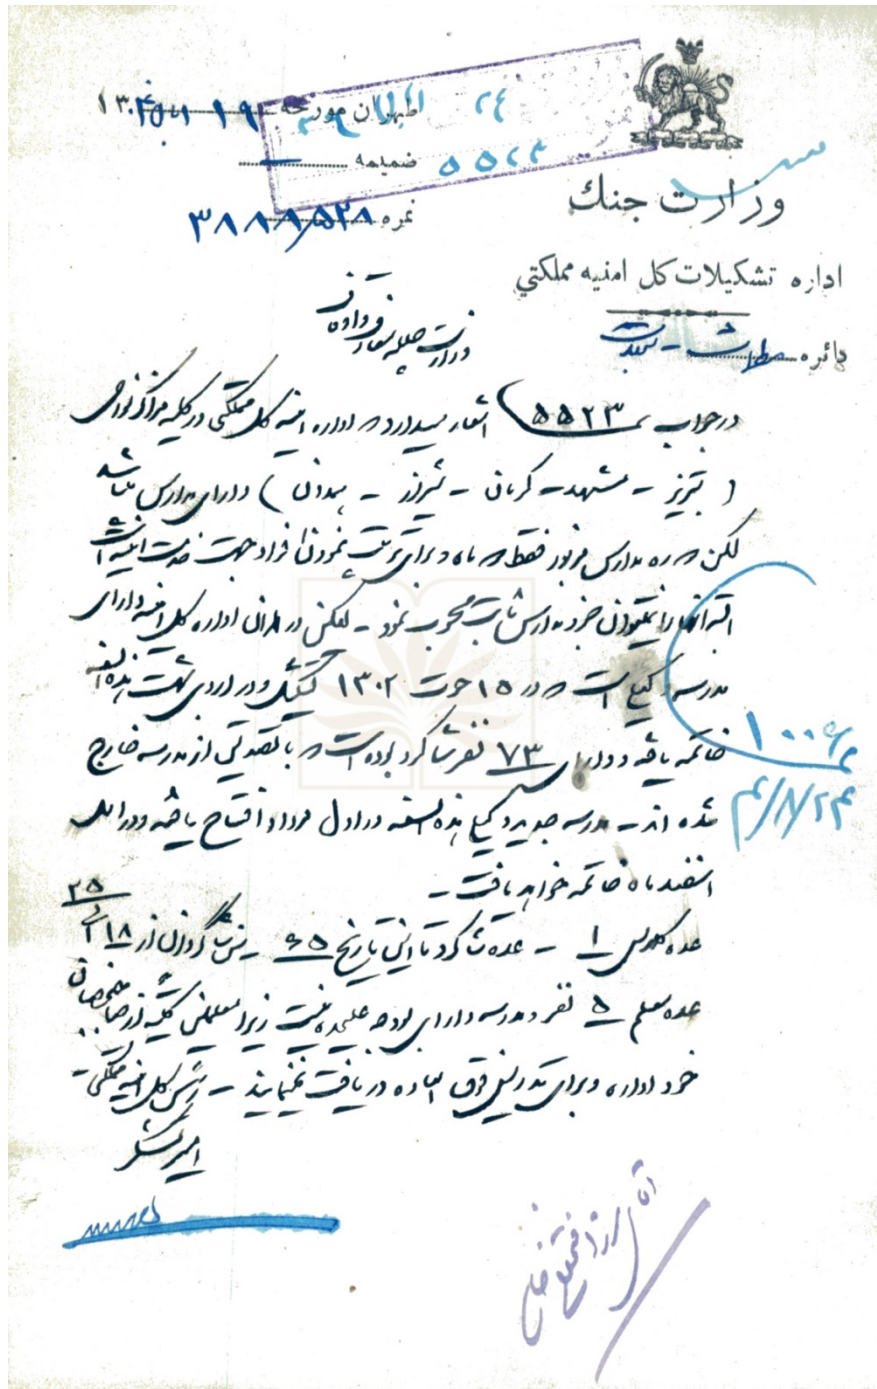 طهران مورخه ۱۹ آبان ۱۳۰۴
۲۴
ضمیمه
۵۵۲۳
نمره ۳۸۸۸۹/۵۲۸
وزارت جنك
اداره تشكيلات كل امنيه مملكتي
دائره
وزارت جلیله معارف و اوقاف
در جواب ۵۵۲۳ اشعار میدارد که اداره امنیه کل مملکتی در کلیه مراکز نواحی
( تبریز - مشهد - کرمان - شیراز - همدان ) دارای مدارس میباشد
لکن دوره مدارس مزبور فقط ماه و برای تربیت نمودن افراد جهت خدمت امنیه است
البته آنها را نمیتوان جزو مدارس ثابت محسوب نمود - لیکن در طهران اداره کل امنیه دارای
مدرسه است که در ۱۵ حوت ۱۳۰۲ تشکیل و در اردیبهشت هذه السنه
خاتمه یافته و دارای ۷۳ نفر شاگرد بوده است که با تصدیق از مدرسه خارج
شده اند - مدرسه جدید هذه السنه در اول مرداد افتتاح یافته و در اوایل
اسفند ماه خاتمه خواهد یافت -
عده کلاس ۱ - عده شاگرد تا این تاریخ ۶۵ سن شاگردان از ۱۸ الی ۲۵
عده معلم ۵ نفر و مدرسه دارای بودجه علیحده نیست زیرا معلمین کلیه از صاحبمنصبان
خود اداره و برای تدریس فوق العاده دریافت نمینمایند - رئیس کل امنیه مملکتی
امیر لشکر
۲۴/۸/۴
آقای میرزا خان